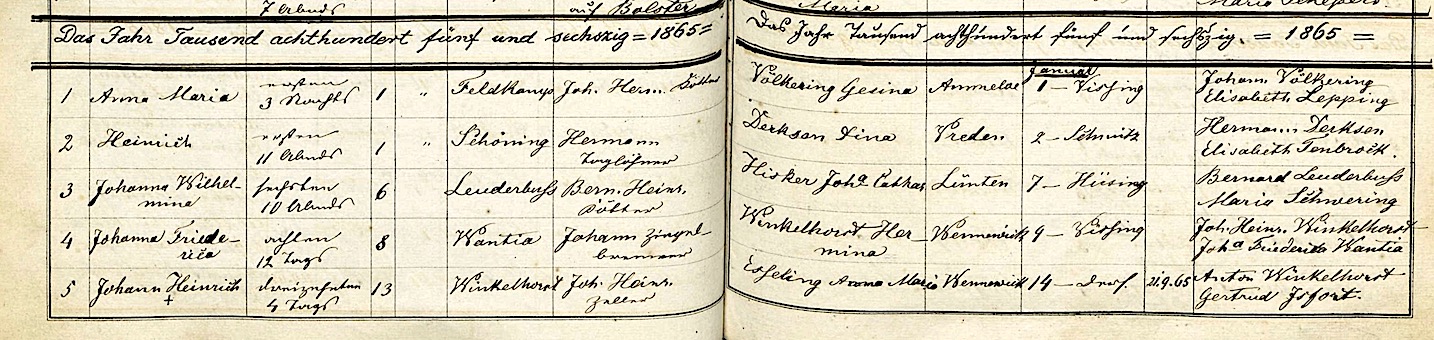 7 Abends auf Bolster
Maria
Das Jahr Tausend achthundert fünf und sechszig = 1865 =
Das Jahr Tausend achthundert fünf und sechszig. = 1865 =
Januar
1 Anna Maria ersten 1 " Feldkamp Joh. Herm. Kötter Völkering Gesina Ammeloe 1 – Vissing Johann Völkering
3 Nachts Elisabeth Lepping
2 Heinrich ersten 1 " Schöning Hermann Derksen Dina Vreden 2 – Schmitz Hermann Derksen
11 Abends Taglöhner Elisabeth Tenbrock.
3 Johanna Wilhel- sechsten 6 Leuderbuss Bern. Heinr. Hisker Joha Cathar Lünten 7 – Hüsing Bernard Leuderbuss
mina 10 Abends Kötter Maria Schwering
4 Johanna Friede- achten 8 Wantia Johann Ziegel- Winkelhorst Her- Wennewick 9 – Vissing Joh. Heinr. Winkelhorst
rica 12 Tags brenner mina Joha Friederika Wantia
5 Johann Heinrich dreizehnten 13 Winkelhorst Joh. Heinr. Esseling Anna Maria Wennewick 14 – ders. 21.9.65 Anton Winkelhorst
+ 4 Tags Zeller Gertrud Isfort.